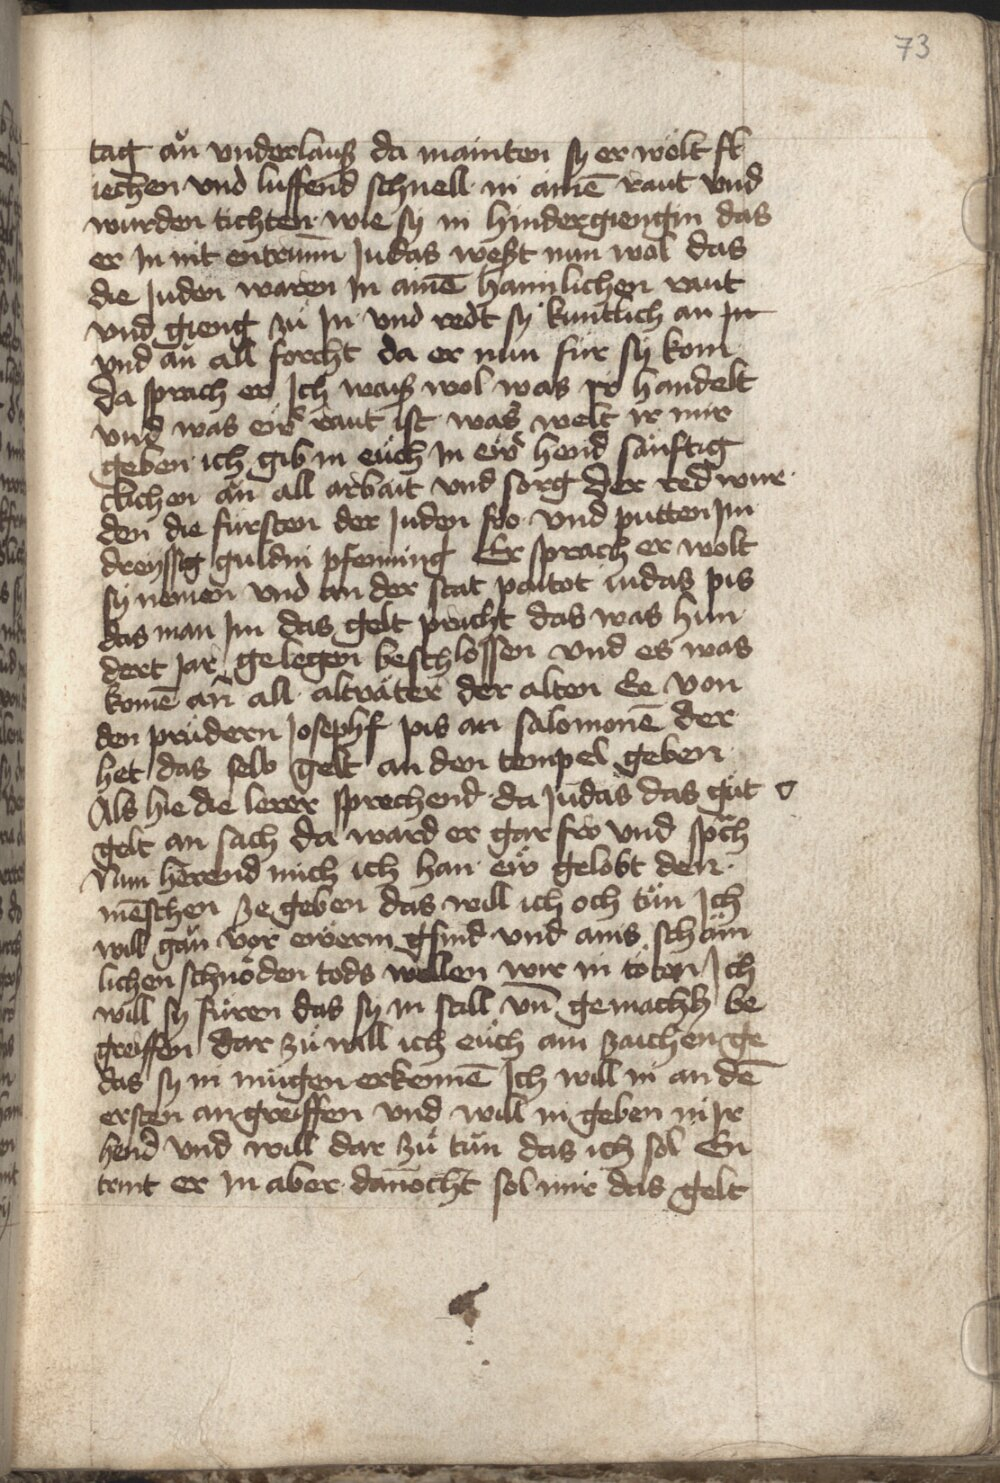 73
tag aun underlauß da mainten sy er wölt fl
iechen vnd luffend schnell in ainē raut vnd
wurden tichten wie sy in hindergiengin das
er in nit entrunn Judas weßt nun wol das
die Juden waren in ainē haimlichen raut
vnd gieng zu In vnd redt sy kuntlich an
vnd aun all forcht da er nun für sy kom
da sprach er Ich waiß wol was ir handelt
vnd was eir raut ist was welt ir mir
geben ich gib in euch in eir hend sänftig
clichen aun all arbait vnd sorg Der red wur
den die fürsten der Juden fro vnd putten Im
dreyssig guldin pfenning Er sprach er wolt
sy nemen vnd an der stat paitot iudas pis
das man Im das gelt pracht das was hun
dert Jar gelegen beschlossen vnd es was
komē an all altväter der alten Ee von
den prüdern Josephs pis an salomonē Der
het das selb gelt an den tempel geben
Als hie die lerer sprechend da Judas das gut
gelt an sach da ward er gar fro vnd spch
Nun hērend mich ich han eir gelobt den
mēschen ze geben das will ich och tun Ich
will gan vor ewerm gsind vnd ains schäm
lichen schnöden tods wellen wir in töten Ich
will sy füren das sy in still vn̄ gemachh be
greiffen Dar zu will ich euch ain zaichen ge
das sy in mügen erkennē Ich will in an dē
ersten an greiffen vnd will in geben in Ir
hend vnd will dar zu tun das ich sol En
trint er in aber dānocht sol mir das gelt